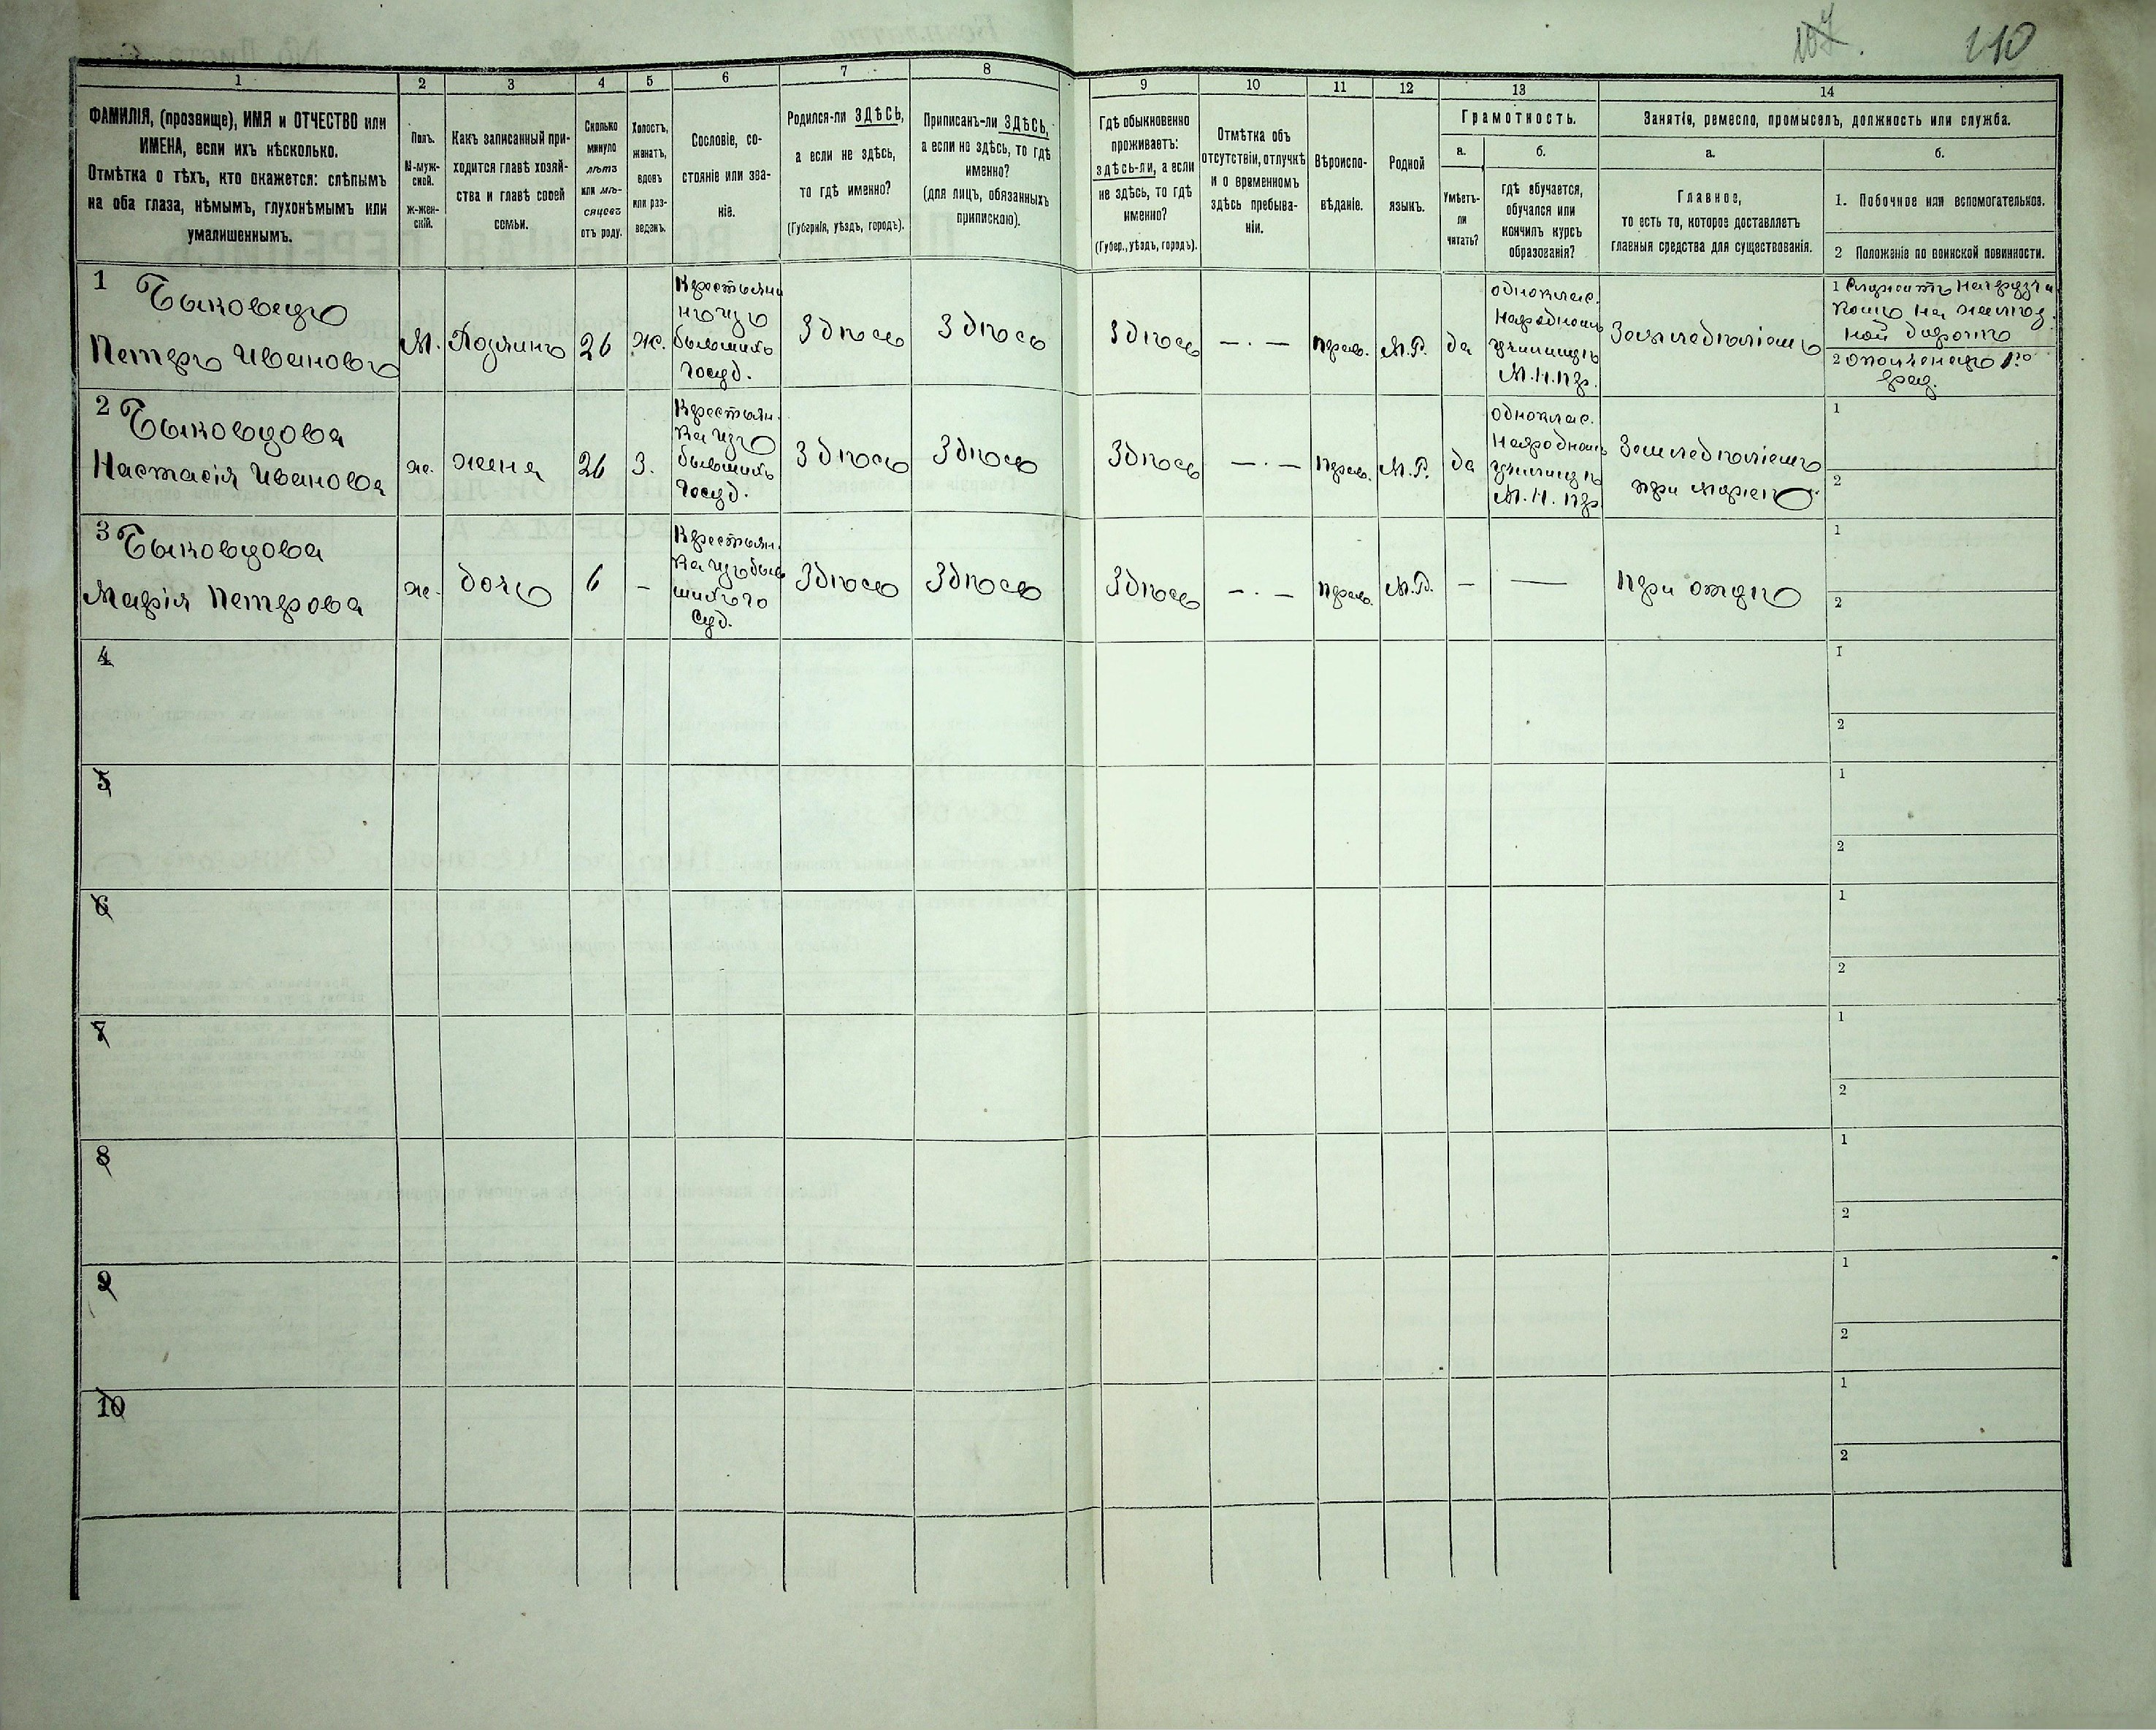 107. 210
1 2 3 4 5 6 7 8 9 10 11 12 13 14
ФАМИЛІЯ, (прозвище), ИМЯ и ОТЧЕСТВО или
ИМЕНА, если ихъ нѣсколько.
Отмѣтка о тѣхъ, кто окажется: слѣпымъ
на оба глаза, нѣмымъ, глухонѣмымъ или
умалишеннымъ.
Полъ.
М-муж-
ской.
ж-жен-
скій.
Какъ записанный при-
ходится главѣ хозяй-
ства и главѣ своей
семьи.
Сколько
минуло
лѣтъ
или мѣ-
сяцевъ
отъ роду.
Холостъ,
женатъ,
вдовъ
или раз-
веденъ.
Сословіе, со-
стояніе или зва-
ніе.
Родился-ли ЗДѢСЬ,
а если не здѣсь,
то гдѣ именно?
(Губернія, уѣздъ, городъ).
Приписанъ-ли ЗДѢСЬ,
а если не здѣсь, то гдѣ
именно?
(для лицъ, обязанныхъ
припискою).
Гдѣ обыкновенно
проживаетъ:
здѣсь-ли, а если
не здѣсь, то гдѣ
именно?
(Губер., уѣздъ, городъ).
Отмѣтка объ
отсутствіи, отлучкѣ
и о временномъ
здѣсь пребыва-
ніи.
Вѣроиспо-
вѣданіе.
Родной
языкъ.
Грамотность.
а.
Умѣетъ-
ли
читать?
б.
гдѣ обучается,
обучался или
кончилъ курсъ
образованія?
Занятія, ремесло, промыселъ, должность или служба.
а.
Главное,
то есть то, которое доставляетъ
главныя средства для существованія.
б.
1. Побочное или вспомогательное.
2 Положеніе по воинской повинности.
1 Быковецъ
Петръ Ивановъ
М.
Хозяинъ
26
ж.
Крестьяни
нъ изъ
бывшихъ
госуд.
Здѣсь
Здѣсь
Здѣсь
— . —
прав.
М.Р.
да
однклас.
Народномъ
училищѣ
М.Н.пр.
Земледѣліемъ
1 Служитъ
на желѣз.
ной дорогѣ
2 Ополченецъ 1го
раз.
2 Быковцова
Настасія Иванова
ж.
жена
26
З.
Крестьян.
ка изъ
бывшихъ
госуд.
Здѣсь
Здѣсь
Здѣсь
— . —
прав.
М.Р.
да
однклас.
Народномъ
училищѣ
М.Н.пр
Земледѣліемъ
при мужѣ
1
2
3 Быковцова
Марія Петрова
ж.
дочь
6
—
Крестьян.
ка изъ быв
шихъ го
суд.
Здѣсь
Здѣсь
Здѣсь
— . —
прав.
М.Р.
—
—
при отцѣ
1
2
4
1
2
5
1
2
6
1
2
7
1
2
8
1
2
9
1
2
10
1
2